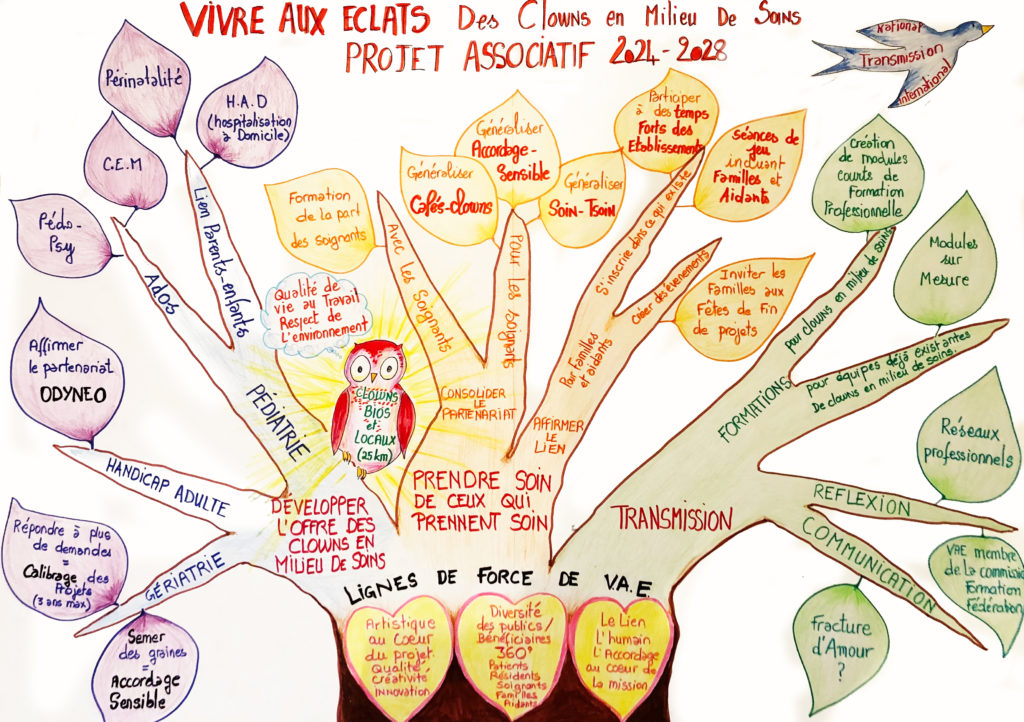 VIVRE AUX ECLATS Des Clowns en Milieu De Soins
PROJET ASSOCIATIF 2024-2028
National
Transmission
international
Périnatalité
H.A.D
(hospitalisation
à Domicile)
C.E.M
Pédo-
Psy
Ados
Lien Parents-enfants
PÉDIATRIE
Affirmer
le partenariat
ODYNEO
HANDICAP ADULTE
Répondre à plus
de demandes
=
Calibrage des
Projets
(3 ans max)
GÉRIATRIE
Semer
des graines
=
Accordage
Sensible
DEVELOPPER
L'OFFRE DES
CLOWNS EN
MILIEU DE SOINS
Qualité de
vie au Travail
Respect de
L'environnement
CLOWNS
BIOS
et
LOCAUX
(25km)
Formation
de la part
des soignants
Avec Les Soignants
Généraliser
Cafés-clowns
Généraliser
Accordage-
Sensible
Généraliser
Soin-Tsoin
Pour Les soignants
CONSOLIDER
LE
PARTENARIAT
PRENDRE SOIN
DE CEUX QUI
PRENNENT SOIN
Participer
à des temps
Forts des
Etablissements
Séances de
jeu
incluant
Familles et
Aidants
S'inscrire dans ce qui existe
Créer des évenements
Inviter les
Familles aux
Fêtes de Fin
de projets
Pour Familles
et aidants
AFFIRMER
LE
LIEN
TRANSMISSION
FORMATIONS
Création
de modules
courts de
Formation
Professionnelle
pour clowns en milieu de soins
Modules
sur
Mesure
pour équipes déjà existantes
De clowns en milieu de soins.
Réseaux
professionnels
REFLEXION
COMMUNICATION
VAE membre
de La commissio
Formation
Fédération
Fracture
d'Amour
?
LIGNES DE FORCE DE V.A.E.
Artistique
au coeur
du projet
Qualité
Créativité
INNOVATION
Diversité
des publics/
Bénéficiaires
360°
Patients
Résidents
Soignants
Familles
Aidants
Le Lien
L'humain
L'Accordage
au coeur de
La mission